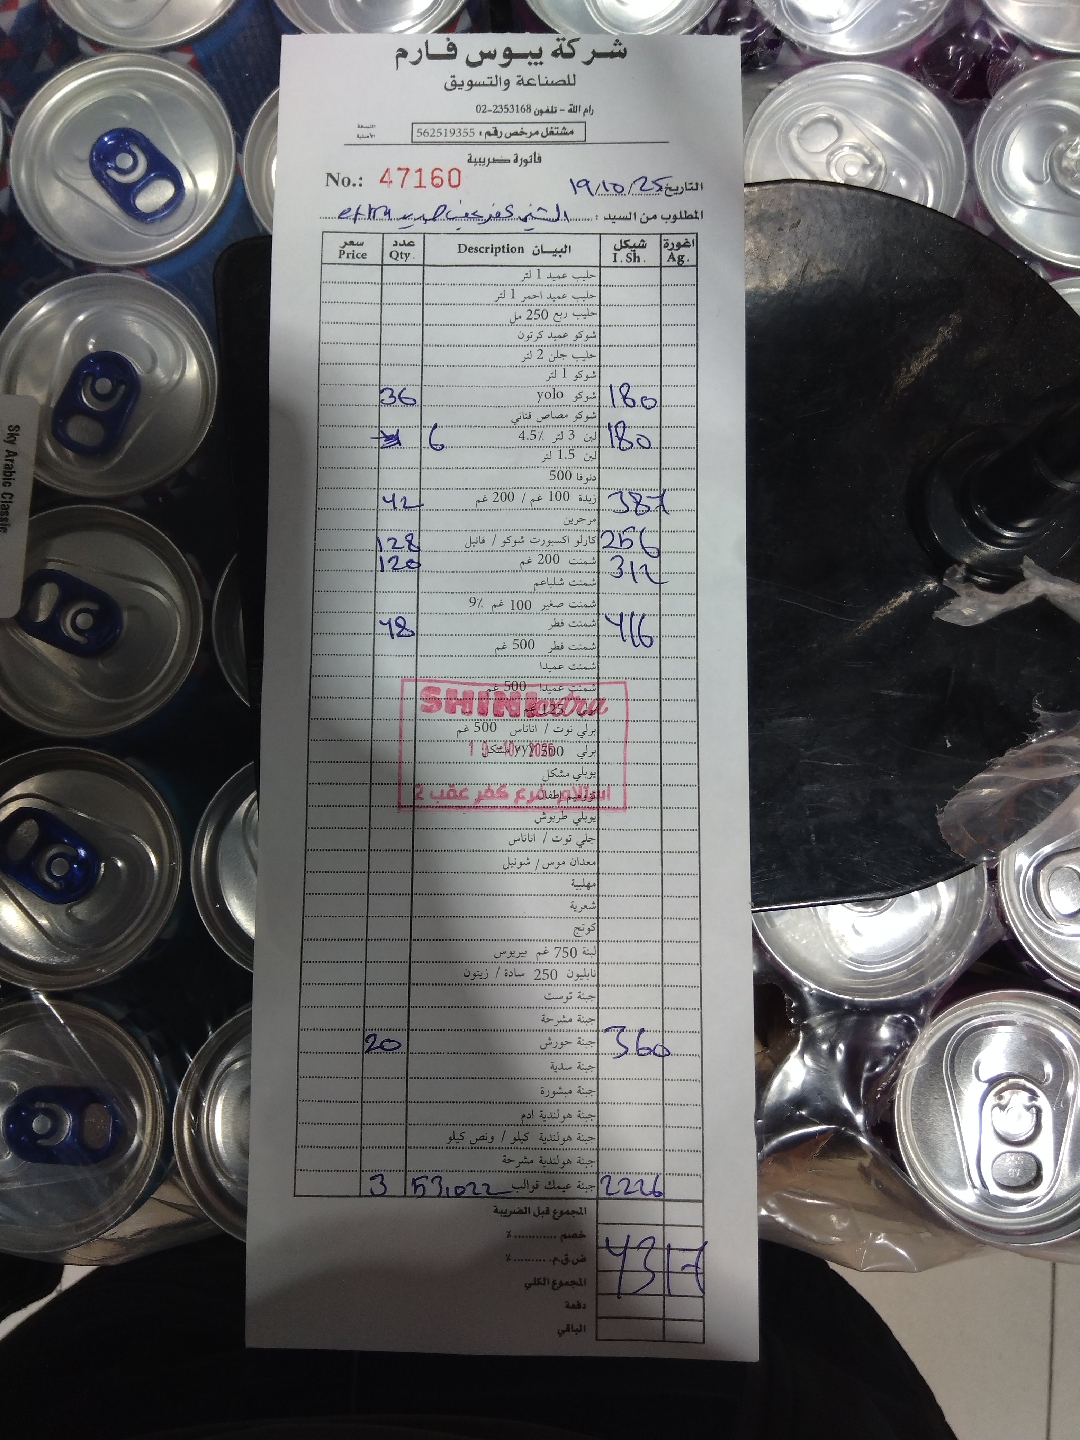 شركة يبوس فارم
للصناعة والتسويق
رام الله - تلفون 2353168-02
مشتغل مرخص رقم: 562519355
النسخة الأصلية
فاتورة ضريبية
No.: 47160
التاريخ 19/10/25
المطلوب من السيد: الشني كفر عقب extra
سعر Price عدد Qty. البيـان Description شيكل I.Sh. اغورة Ag.
حليب عميد 1 لتر
حليب عميد احمر 1 لتر
حليب ربع 250 مل
شوكو عميد كرتون
حليب جلن 2 لتر
شوكو 1 لتر
36 شوكو yolo 180
شوكو مصاص فتاني
6 لبن 3 لتر 4.5٪ 180
لبن 1.5 لتر
دنوفا 500
42 زبدة 100 غم / 200 غم 387
مرجرين
128 كارلو اكسبورت شوكو / فانيل 256
120 شمنت 200 غم 312
شمنت شلباعم
شمنت صغير 100 غم 9٪
48 شمنت فطر 416
شمنت فطر 500 غم
شمنت عميدا
شمنت عميدا 500 غم
SHINI extra
برلي توت / اناناس 500 غم
برلي 500
يوبلي مشكل
استلام فرع كفر عقب 2
يوبلي طربوش
جلي توت / اناناس
معدان موس / شونيل
مهلبية
شعرية
كوتج
لبنة 750 غم بيريوس
نابليون 250 سادة / زيتون
جبنة توست
جبنة مشرحة
20 جبنة حورش 360
جبنة سدية
جبنة مبشورة
جبنة هولندية ادم
جبنة هولندية كيلو / ونص كيلو
جبنة هولندية مشرحة
3 53,022 جبنة عيمك قوالب 2226
المجموع قبل الضريبة
خصم ............ ٪
ض.ق.م. ......... ٪
المجموع الكلي 4317
دفعة
الباقي
Sky Arabic Classic